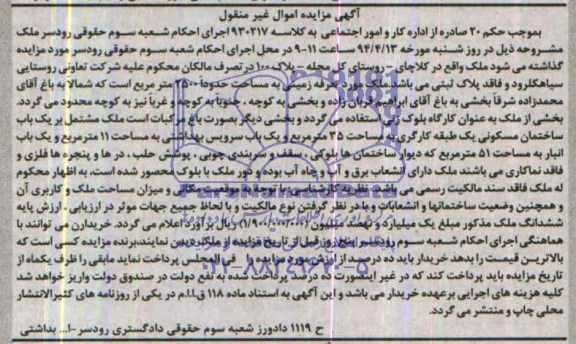 آگهی مزایده اموال غیر منقول
بموجب حکم ۲۰ صادره از اداره کار و امور اجتماعی به کلاسه ۹۳۰۲۱۷ اجرای احکام شعبه سوم حقوقی رودسر ملک
مشروحه ذیل در روز شنبه مورخه ۹۴/۴/۱۳ ساعت ۱۱-۹ در محل اجرای احکام شعبه سوم حقوقی رودسر مورد مزایده
گذاشته می شود ملک واقع در کلاچای – روستای کل محله – پلاک ۱۰۰ در تصرف مالکان محکوم علیه شرکت تعاونی روستایی
سیاهکلرود و فاقد پلاک ثبتی می باشد. ملک مورد تعرفه زمینی به مساحت حدودا ۲۵۰۰ متر مربع است که شمالا به باغ آقای
محمدزاده شرقاً بخشی به باغ آقای ابراهیم قربان زاده و بخشی به کوچه ، جنوباً به کوچه و غرباً نیز به کوچه محدود می گردد.
بخشی از ملک به عنوان کارگاه بلوک زنی استفاده می گردد و بخشی دیگر بصورت باغ مرکبات است ملک مشتمل بر یک باب
ساختمان مسکونی یک طبقه کارگری به مساحت ۳۵ مترمربع و یک باب سرویس بهداشتی به مساحت ۱۱ مترمربع و یک باب
انبار به مساحت ۵۱ مترمربع که دیوار ساختمان ها بلوکی ، سقف و سربندی چوبی ، پوشش حلب ، در ها و پنجره ها فلزی و
فاقد نماکاری می باشند ملک دارای انشعاب برق و آب و چاه آب بوده و دور ملک با بلوک محصور شده است، به اظهار محکوم
له ملک فاقد سند مالکیت رسمی می باشد. نظریه کارشناسی: با توجه به موقعیت مکانی و میزان مساحت ملک و کاربری آن
و همچنین وضعیت ساختمانها و انشعابات و با در نظر گرفتن نوع مالکیت و با لحاظ جمیع جهات موثر در ارزیابی ، ارزش پایه
ششدانگ ملک مذکور مبلغ یک میلیارد و نهصد میلیون (۱/۹۰۰/۰۰۰/۰۰۰) ریال برآورد اعلام می گردد. خریداران می توانند با
هماهنگی اجرای احکام شعبه سوم رودسر پنج روز قبل از تاریخ مزایده از ملک دیدن نمایند.برنده مزایده کسی است که
بالاترین قیمت را بدهد خریدار باید ده درصد از ارزش مورد مزایده را فی المجلس پرداخت نماید مابقی را ظرف یکماه از
تاریخ مزایده باید پرداخت کند که در غیر اینصورت ده درصد پرداخت شده به نفع دولت در صندوق دولت واریز خواهد شد
کلیه هزینه های اجرایی برعهده خریدار می باشد و این آگهی به استناد ماده ۱۱۸ ق.ا.ا.م در یکی از روزنامه های کثیرالانتشار
محلی چاپ و منتشر می گردد.
ح ۱۱۱۹ دادورز شعبه سوم حقوقی دادگستری رودسر -ا... بداشتی
۰۲۱-۸۸۳۴۹۶۷۰-۵